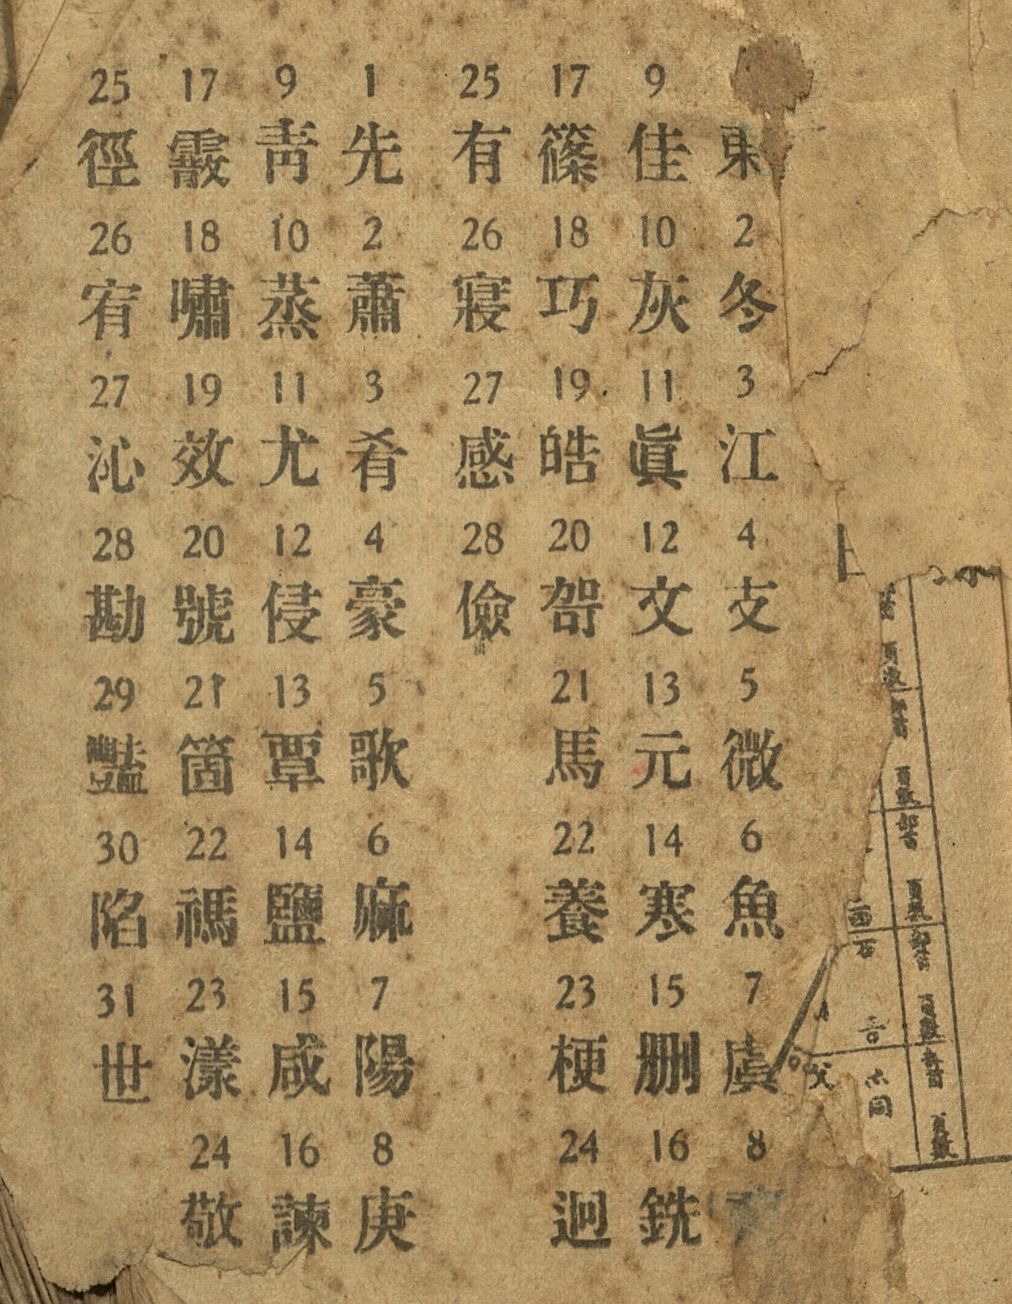 頁數 部首 頁數 部首 頁數
東 2 冬 3 江 4 支 5 微 6 魚 7 虞 8
9 佳 10 灰 11 眞 12 文 13 元 14 寒 15 刪 16 銑
17 篠 18 巧 19 皓 20 哿 21 馬 22 養 23 梗 24 迥
25 有 26 寢 27 感 28 儉
1 先 2 蕭 3 肴 4 豪 5 歌 6 麻 7 陽 8 庚
9 靑 10 蒸 11 尤 12 侵 13 覃 14 鹽 15 咸 16 諫
17 霰 18 嘯 19 效 20 號 21 箇 22 禡 23 漾 24 敬
25 徑 26 宥 27 沁 28 勘 29 豔 30 陷 31 世